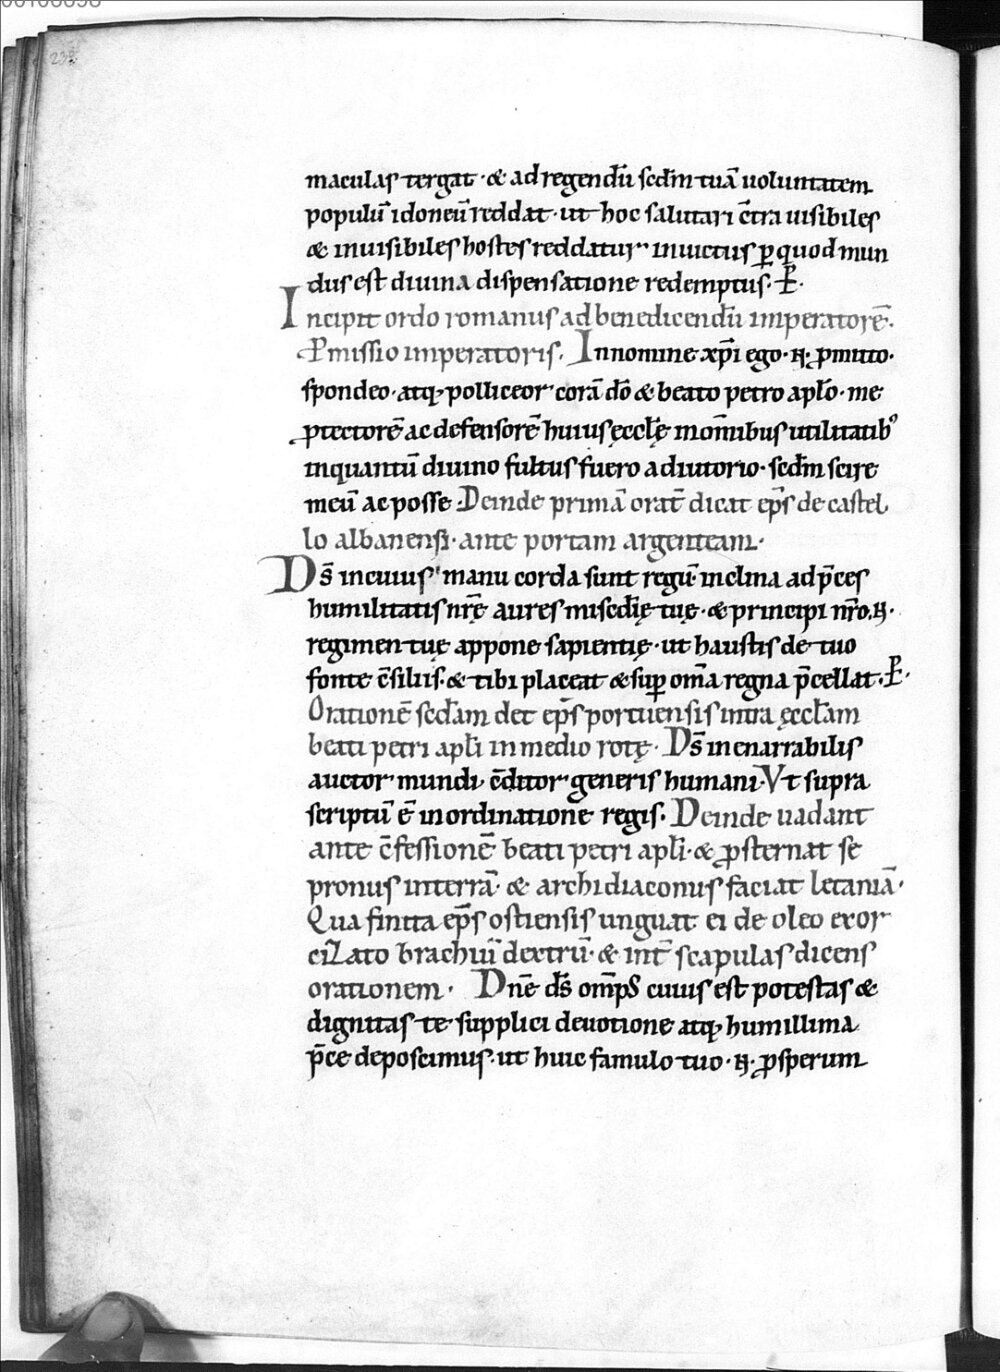 maculas tergat · & ad regendū scdm̄ tuā uoluntatem
populū idoneū reddat · ut hoc salutari c̄tra uisibiles
& inuisibiles hostes reddatur inuictus ꝑ quod mun
dus est diuina dispensatione redemptus · P̄ ·
Incipit ordo romanus ad benedicendū imperatorē ·
Pmissio imperatoris · In nomine xp̄i ego · N · ꝓmitto ·
spondeo · atq; polliceor corā dō & beato petro apl̄o · me
ꝓtectorē ac defensorē huius ęccl̄ę in om̄ibus utilitatib'
inquantū diuino fultus fuero adiutorio · scdm̄ scire
meū ac posse · Deinde primā orat̄ dicat ep̄s de castel
lo albanensi · ante portam argenteam ·
Ds̄ in cuius manu corda sunt regū · inclina ad p̄ces
humilitatis nr̄ę aures misc̄dię tuę · & principi nr̄o · N ·
regimen tuę appone sapientię · ut haustis de tuo
fonte c̄siliis · & tibi placeat & suꝑ om̄a regna p̄cellat · P̄ ·
Orationē scd̄am det ep̄s portuensis intra ęccl̄am
beati petri apl̄i in medio rotę · Ds̄ inenarrabilis
auctor mundi c̄ditor generis humani · Vt supra
scriptū ē in ordinatione regis · Deinde uadant
ante c̄fessionē beati petri apl̄i · & ꝓsternat se
pronus in terrā · & archidiaconus faciat letaniā ·
Qua finita ep̄s ostiensis unguat ei de oleo exor
cizato brachiū dextrū · & int̄ scapulas dicens
orationem · Dn̄e ds̄ om̄ps cuius est potestas &
dignitas te supplici deuotione atq; humillima
p̄ce deposcimus · ut huic famulo tuo · N · ꝓsperum